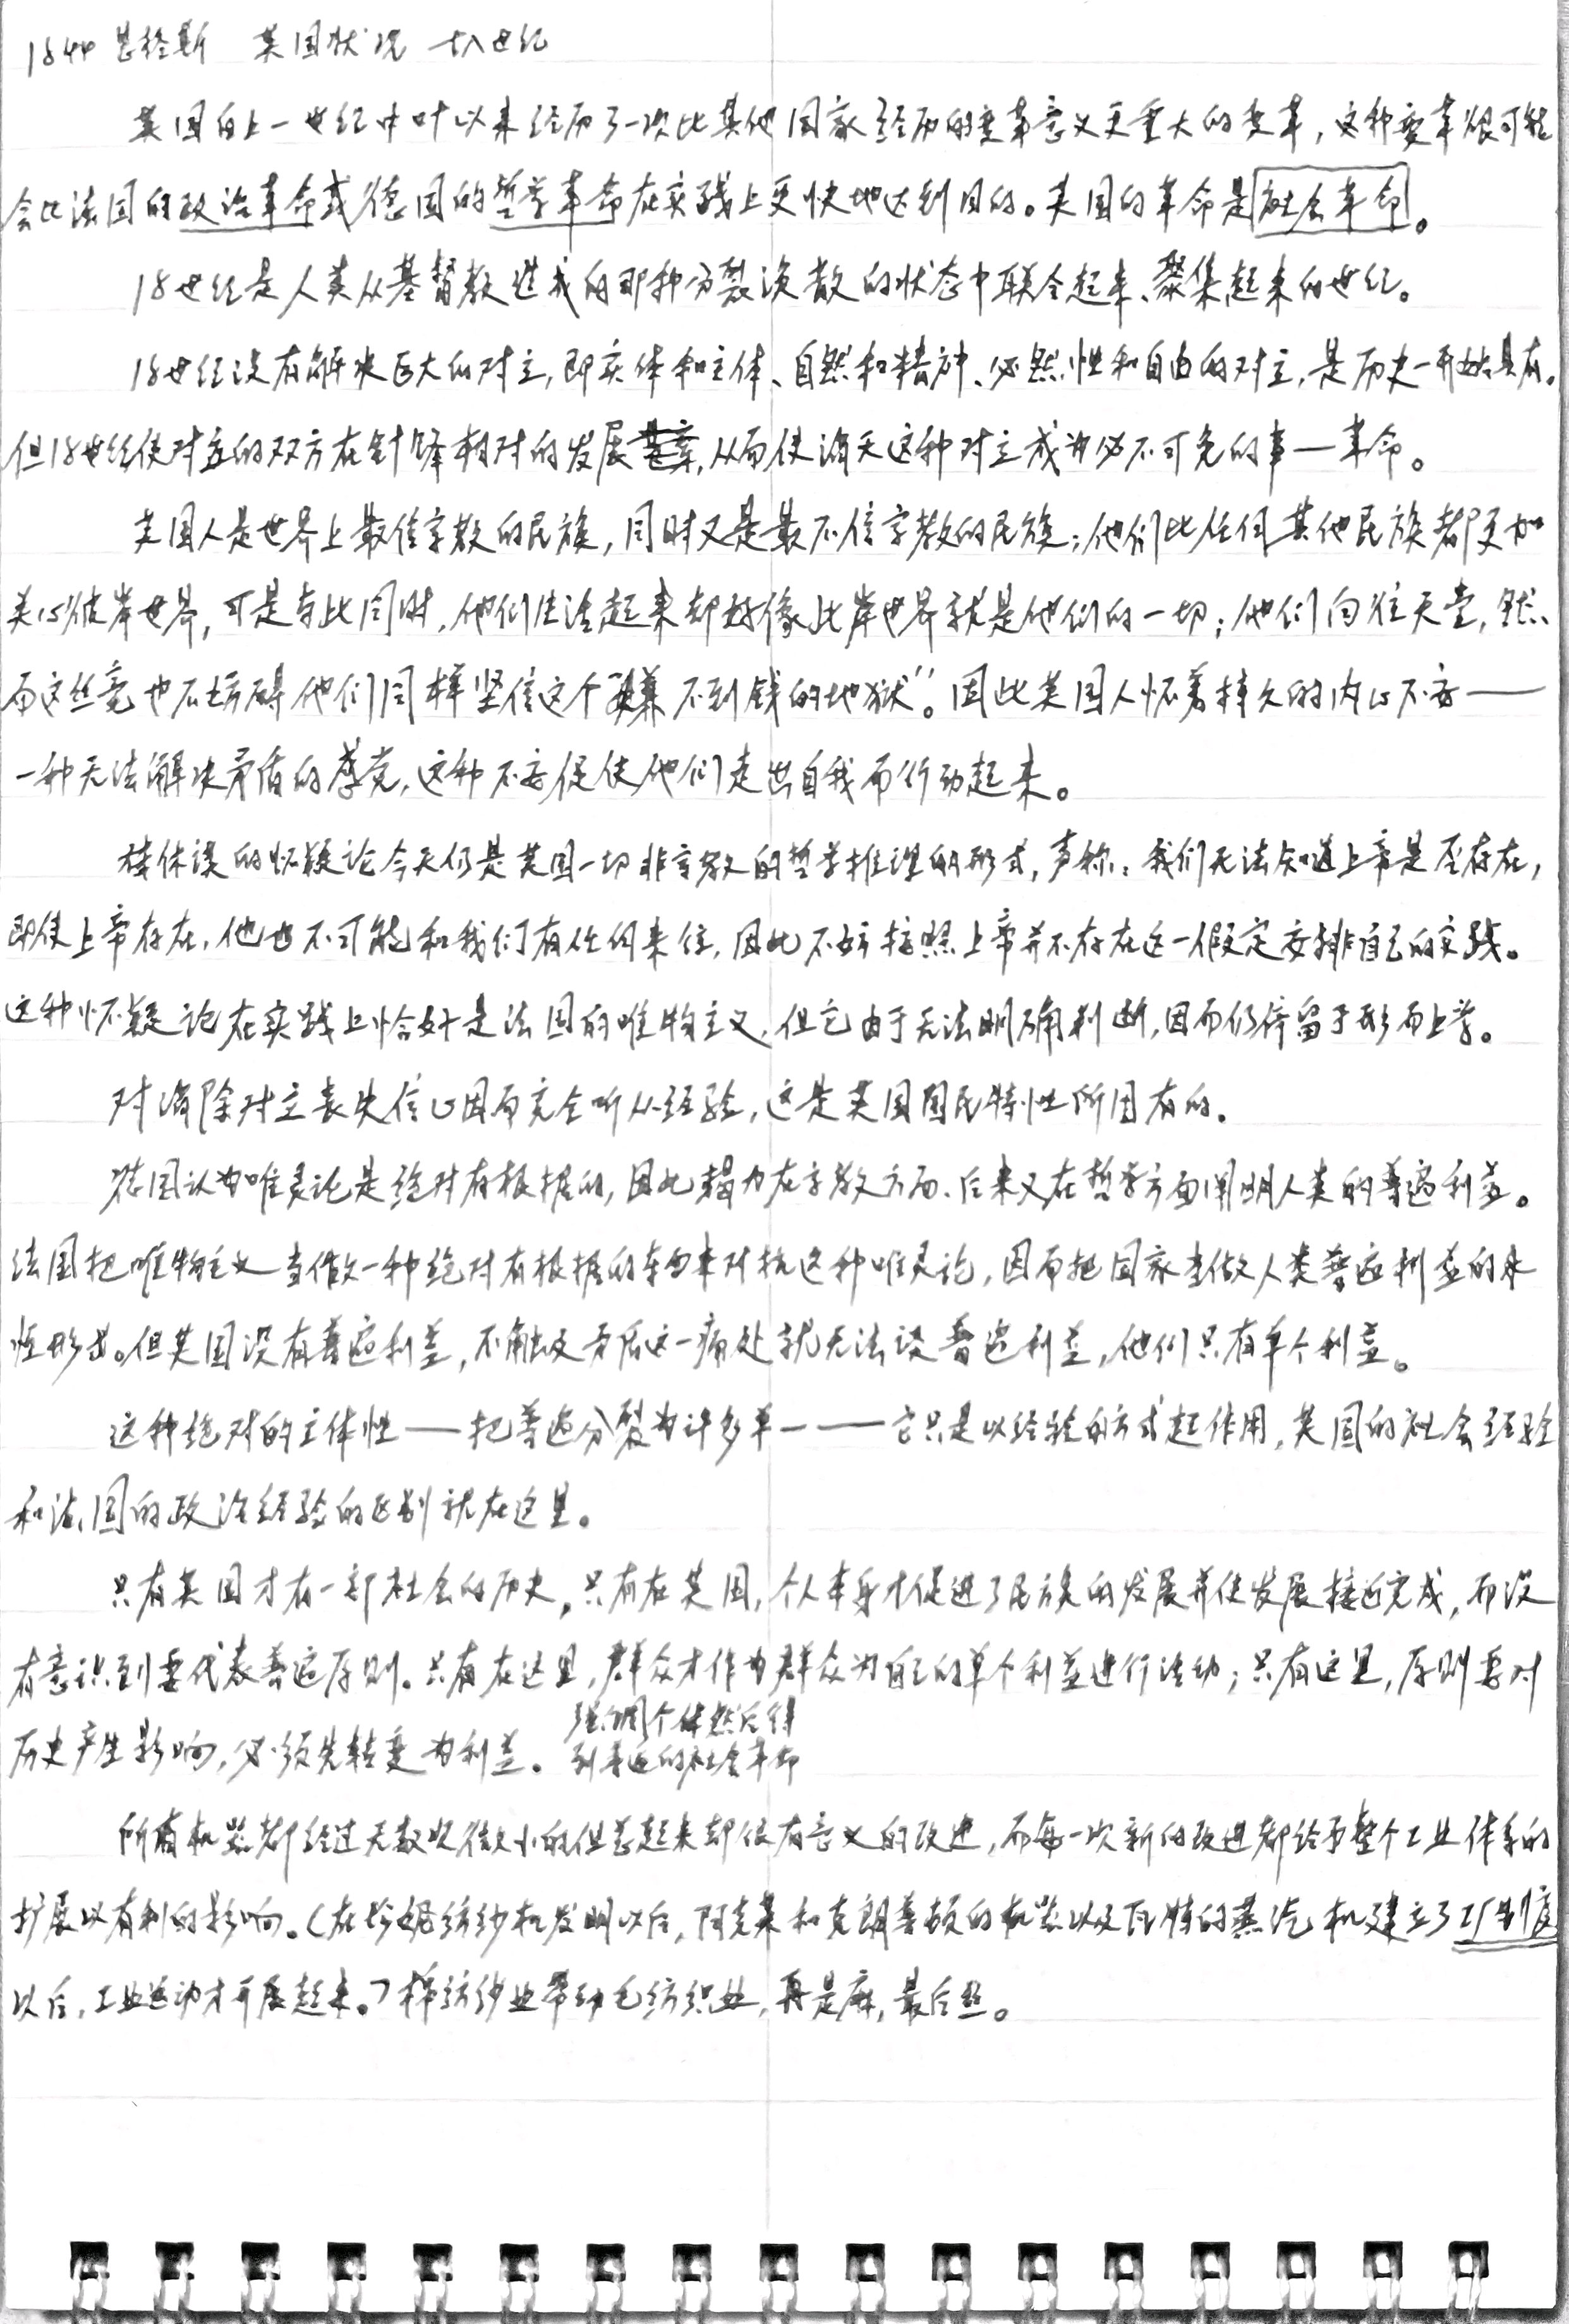 1844 恩格斯 英国状况 十八世纪
英国自上一世纪中叶以来经历了一次比其他国家经历的变革意义更重大的变革，这种变革很可能
会比法国的政治革命或德国的哲学革命在实践上更快地达到目的。英国的革命是社会革命。
18世纪是人类从基督教造成的那种分裂涣散的状态中联合起来、聚集起来的世纪。
18世纪没有解决巨大的对立，即实体和主体、自然和精神、必然性和自由的对立，是历史一开始具有。
但18世纪使对立的双方在针锋相对的发展，从而使消灭这种对立成为必不可免的事—革命。
英国人是世界上最信宗教的民族，同时又是最不信宗教的民族；他们比任何其他民族都更加
关心彼岸世界，可是与此同时，他们生活起来却好像此岸世界就是他们的一切；他们向往天堂，然
而这丝毫也不妨碍他们同样坚信这个“赚不到钱的地狱”。因此英国人怀着持久的内心不安——
一种无法解决矛盾的感觉，这种不安促使他们走出自我而行动起来。
休谟的怀疑论今天仍是英国一切非宗教的哲学推理的形式，声称：我们无法知道上帝是否存在，
即使上帝存在，他也不可能和我们有任何来往，因此不妨按照上帝并不存在这一假定安排自己的实践。
这种怀疑论在实践上恰好是法国的唯物主义，但它由于无法明确判断，因而仍停留于形而上学。
对消除对立丧失信心因而完全听从经验，这是英国国民特性所固有的。
德国认为唯灵论是绝对有根据的，因此竭力在宗教方面、后来又在哲学方面阐明人类的普遍利益。
法国把唯物主义当做一种绝对有根据的东西来对抗这种唯灵论，因而把国家当做人类普遍利益的永
恒形式。但英国没有普遍利益，不触及矛盾这一痛处就无法谈普遍利益，他们只有单个利益。
这种绝对的主体性——把普遍分裂为许多单一——它只是以经验的方式起作用，英国的社会经验
和法国的政治经验的区别就在这里。
只有英国才有一部社会的历史。只有在英国，个人本身才促进了民族的发展并使发展接近完成，而没
有意识到要代表普遍原则。只有在这里，群众才作为群众为自己的单个利益进行活动；只有这里，原则要对
历史产生影响，必须先转变为利益。 强调个体然后得
到普遍的社会革命
所有机器都经过无数次微小的但总起来却很有意义的改进，而每一次新的改进都给予整个工业体系的
扩展以有利的影响。（在珍妮纺纱机发明以后，阿克莱和克朗普顿的机器以及瓦特的蒸汽机建立了工厂制度
以后，工业运动才开展起来。）棉纺纱业带动毛纺织业，再是麻，最后丝。